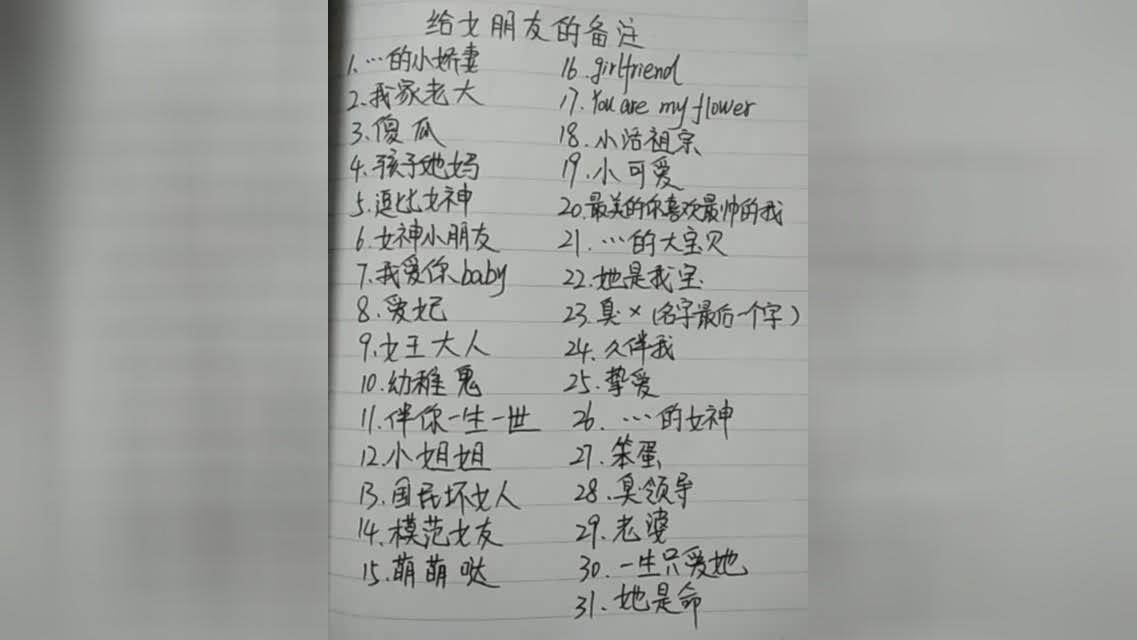 给女朋友的备注
1.…的小娇妻
2.我家老大
3.傻瓜
4.孩子她妈
5.逗比女神
6.女神小朋友
7.我爱你baby
8.爱妃
9.女王大人
10.幼稚鬼
11.伴你一生一世
12.小姐姐
13.国民坏女人
14.模范女友
15.萌萌哒
16.girlfriend
17.You are my flower
18.小活祖宗
19.小可爱
20.最美的你喜欢最帅的我
21.…的大宝贝
22.她是我宝.
23.臭×(名字最后一个字)
24.久伴我
25.挚爱
26.…的女神
27.笨蛋
28.臭领导
29.老婆
30.一生只爱她
31.她是命